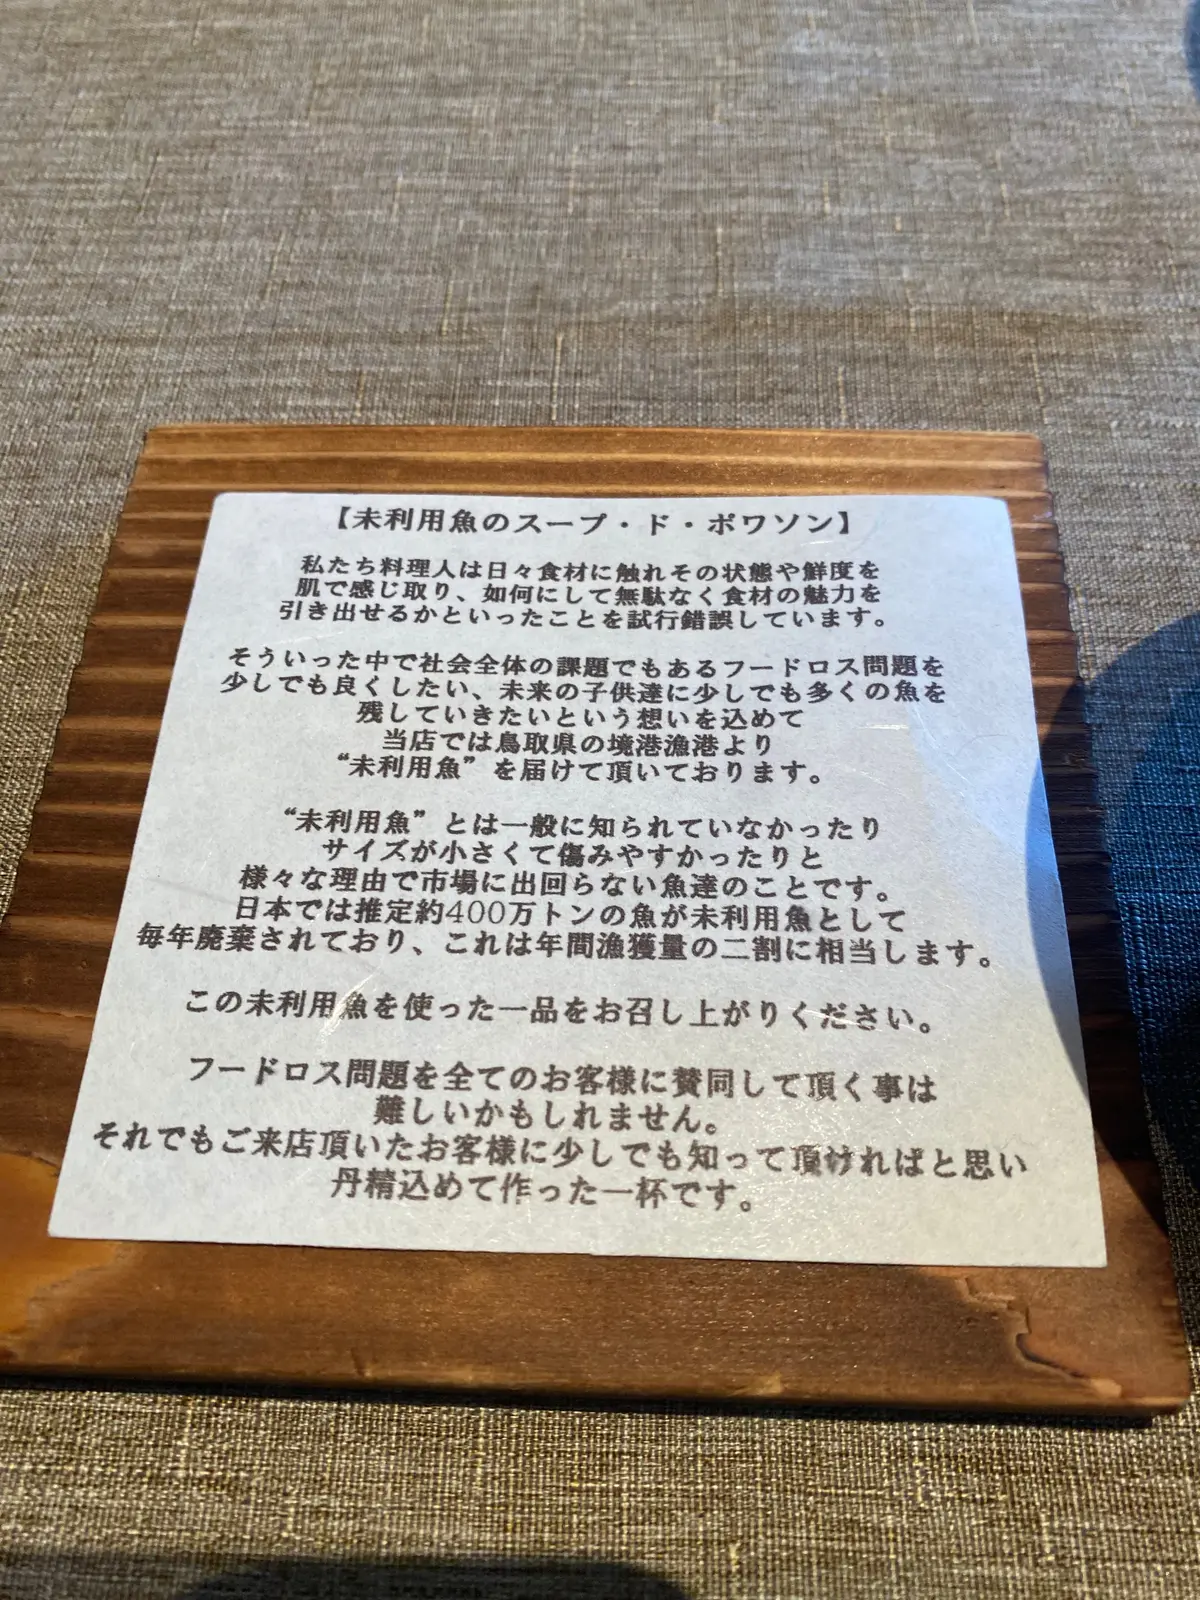 【未利用魚のスープ・ド・ポワソン】
私たち料理人は日々食材に触れその状態や鮮度を
肌で感じ取り、如何にして無駄なく食材の魅力を
引き出せるかといったことを試行錯誤しています。
そういった中で社会全体の課題でもあるフードロス問題を
少しでも良くしたい、未来の子供達に少しでも多くの魚を
残していきたいという想いを込めて
当店では鳥取県の境港漁港より
“未利用魚”を届けて頂いております。
“未利用魚”とは一般に知られていなかったり
サイズが小さくて傷みやすかったりと
様々な理由で市場に出回らない魚達のことです。
日本では推定約400万トンの魚が未利用魚として
毎年廃棄されており、これは年間漁獲量の二割に相当します。
この未利用魚を使った一品をお召し上がりください。
フードロス問題を全てのお客様に賛同して頂く事は
難しいかもしれません。
それでもご来店頂いたお客様に少しでも知って頂ければと思い
丹精込めて作った一杯です。